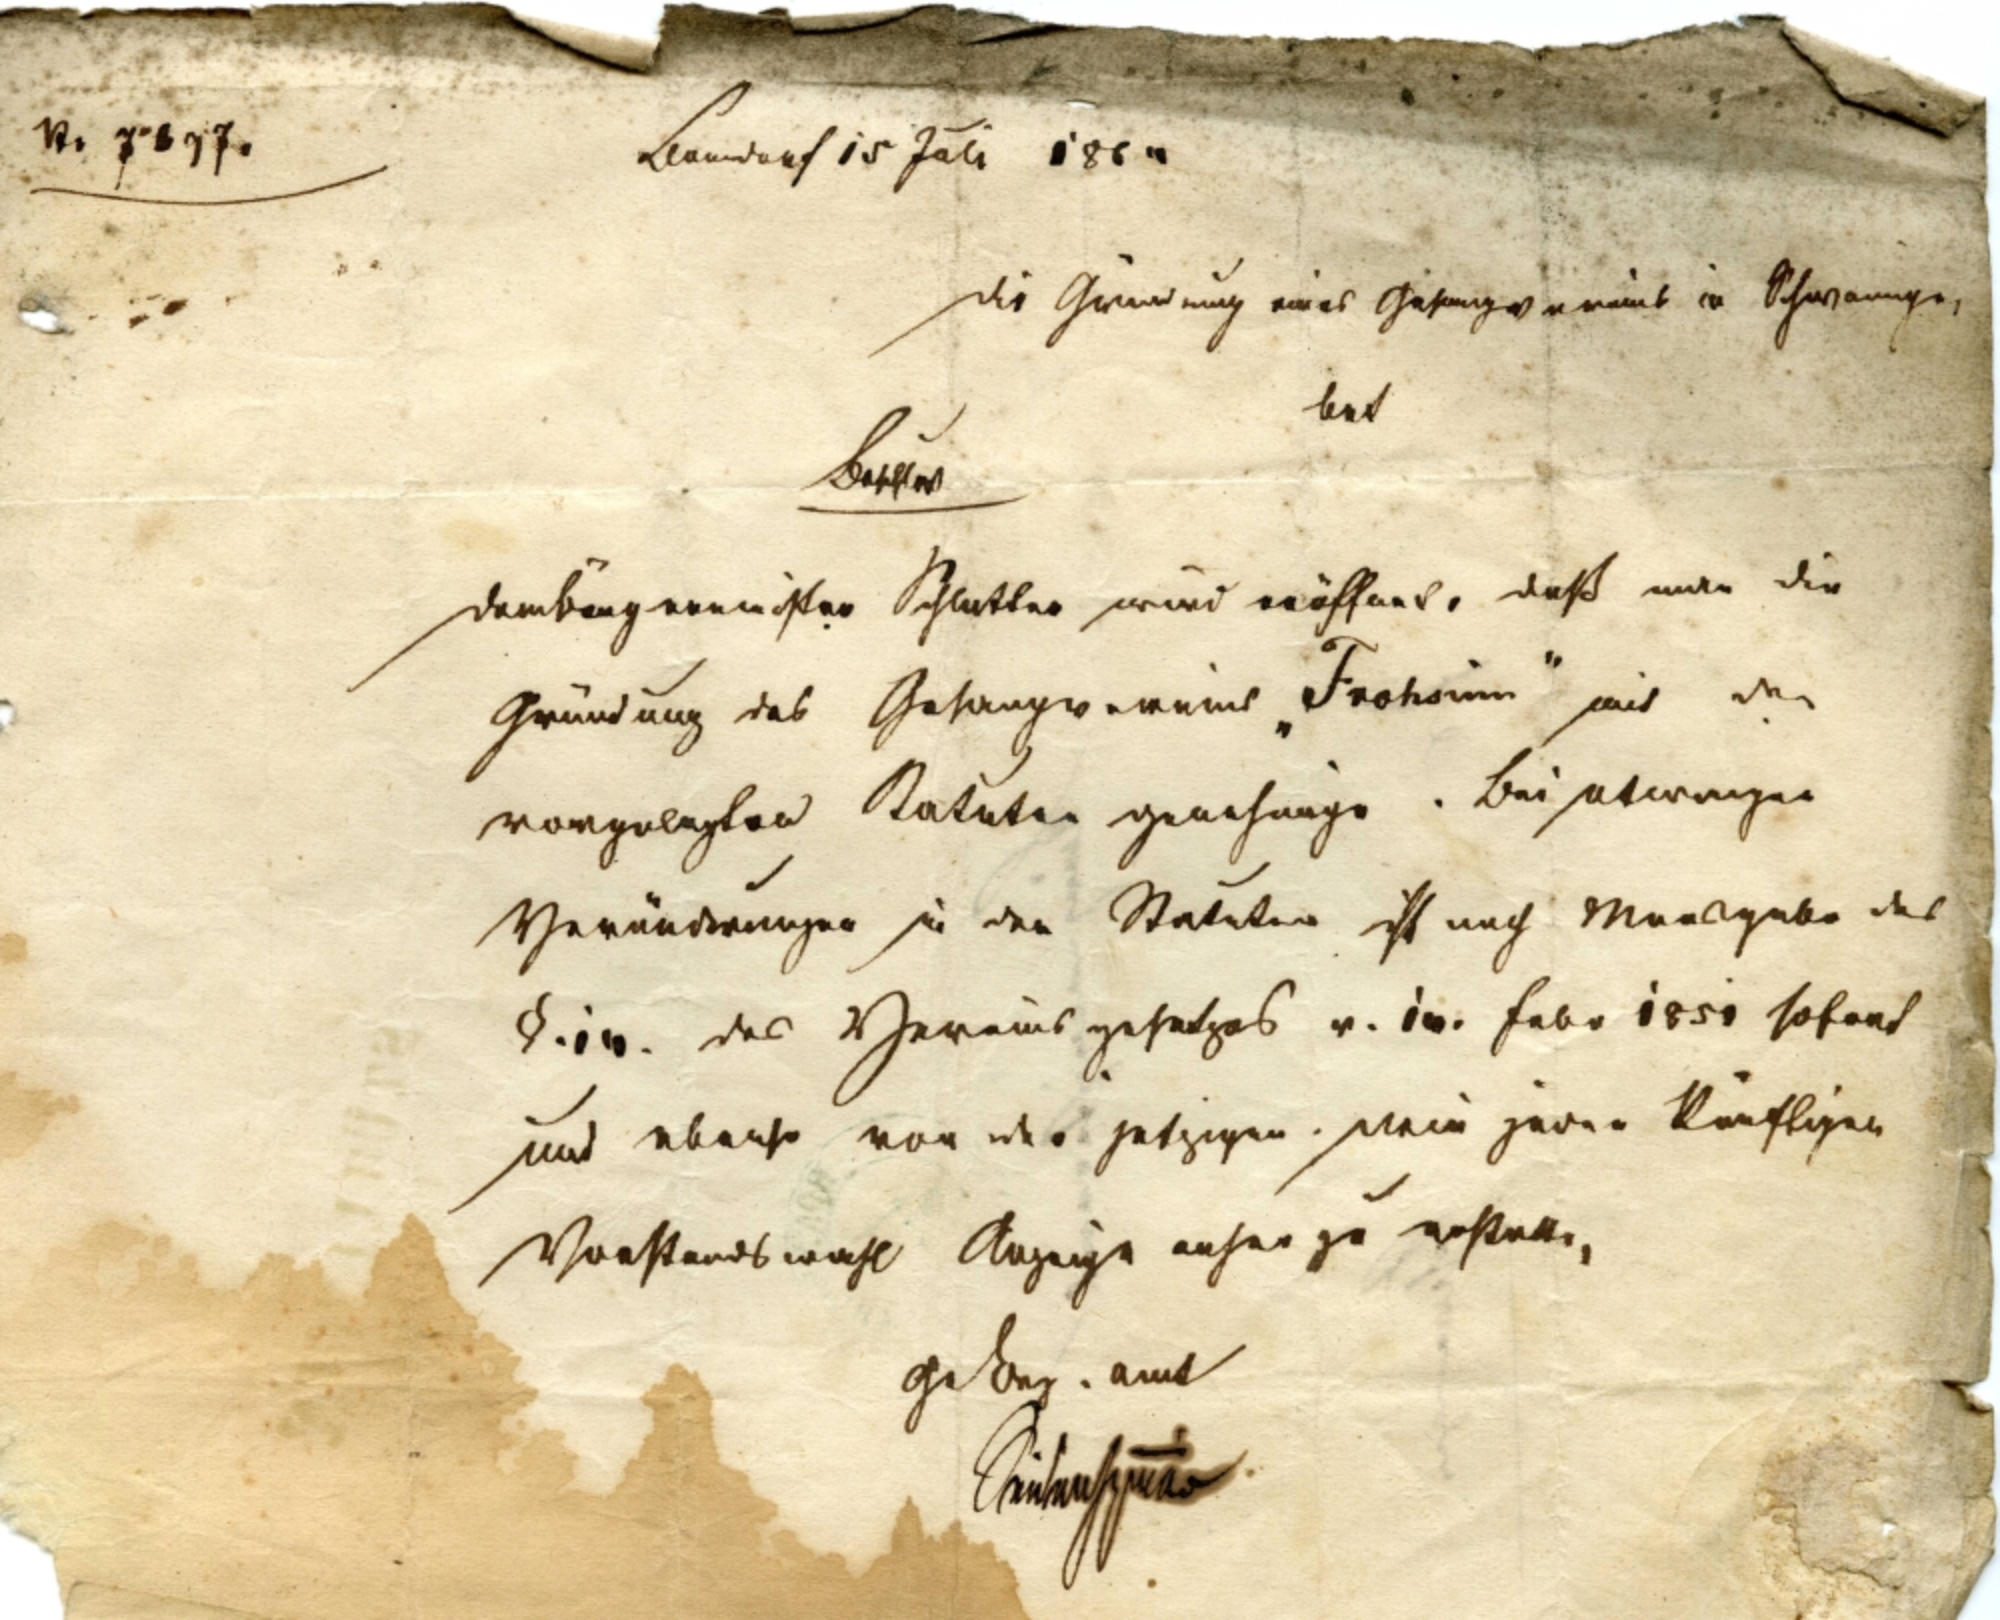 Bonndorf 15 Juli 186
Die Gründung eines Gesangvereins in Schwaningen,
bet
Beschluss
Dem Bürgermeister Schlatter wird eröffnet, daß man die
Gründung des Gesangvereins „Frohsinn“ mit den
vorgelegten Statuten genehmige. Bei etwaigen
Veränderungen in den Statuten ist nach Maasgabe des
§. 10. des Vereinsgesetzes v. Febr 1851 sofort
und ebenso von der jetzigen, wie jeder künftigen
Vorstandswahl Anzeige anher zu erstatten,
Gr Bez. amt